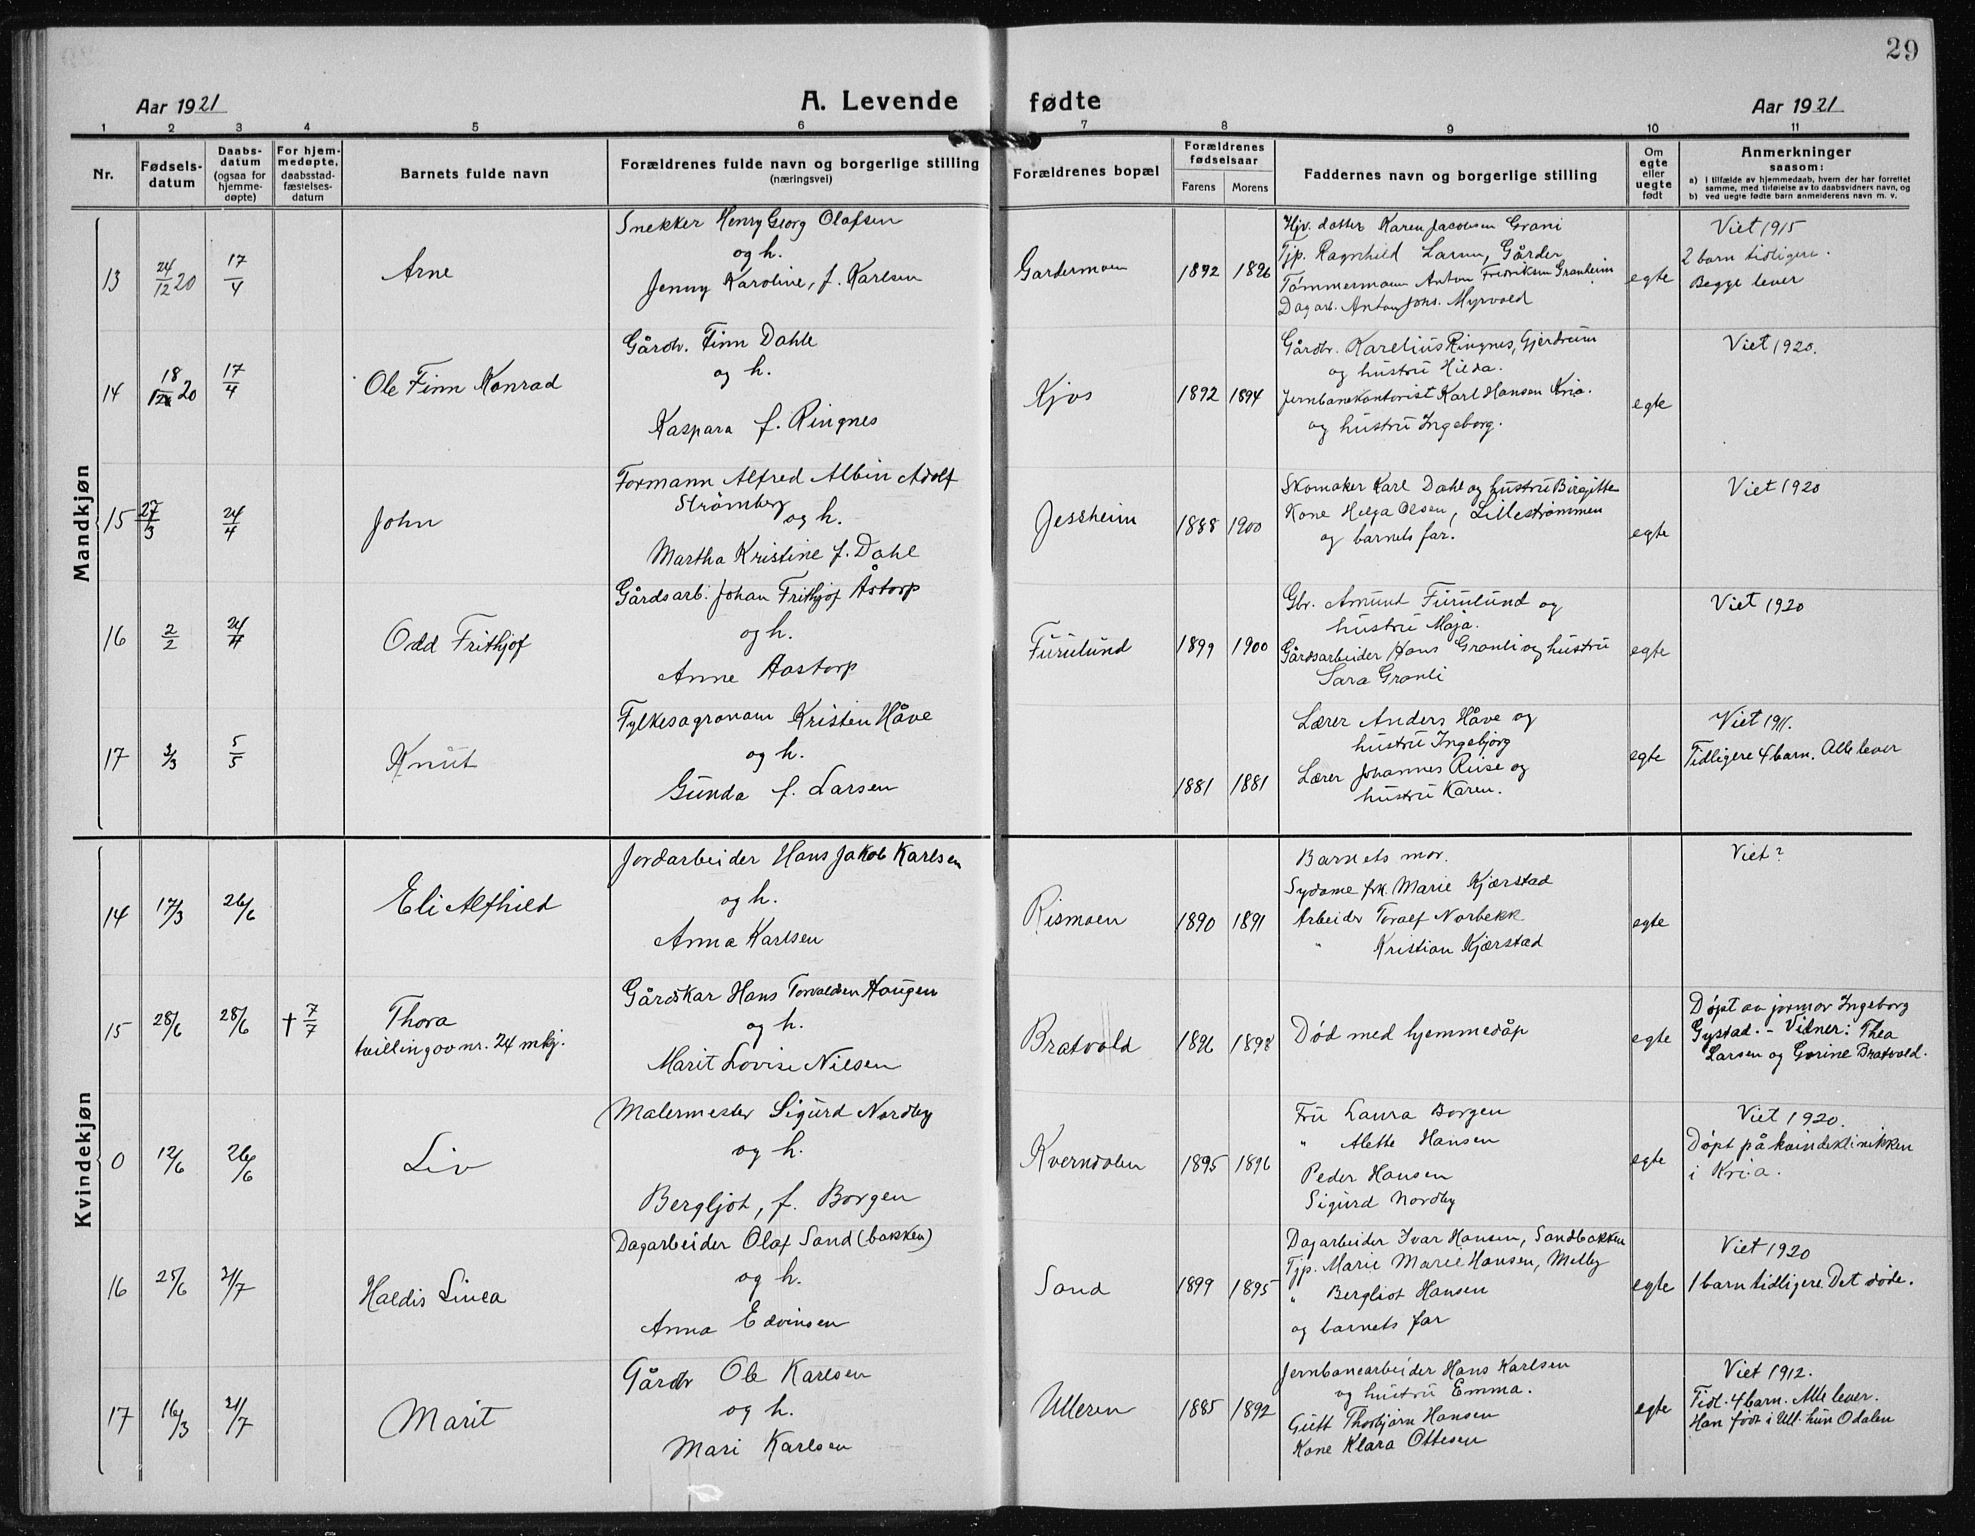 29
Aar 1921
A. Levende fødte
Aar 1921
1 2 3 4 5 6 7 8 9 10 11
Nr.
Fødsels-
datum
Daabs-
datum
(ogsaa for
hjemme-
døpte)
For hjem-
medøpte,
daabsstad-
fæstelses-
datum
Barnets fulde navn
Forældrenes fulde navn og borgerlige stilling
(næringsvei)
Forældrenes bopæl
Forældrenes
fødselsaar
Farens Morens
Faddernes navn og borgerlige stilling
Om
egte
eller
uegte
født
Anmerkninger
saasom:
a) I tilfælde av hjemmedaab, hvem der har forrettet
samme, med tilføielse av to daabsvidners navn, og
b) ved uegte fødte barn anmelderens navn m. v.
Mandkjøn
13
24/12 20
17/4
Arne
Snekker Henry Georg Olafsen
og h.
Jenny Karoline, f. Karlsen
Gardermoen
1892 1896
Hjv. datter Karen Jacobsen Grani
Tjp. Ragnhild Larsen, Gårder
Tømmermann Anton Fredriksen Granheim
Dagarb. Anton Johs. Myrvold
egte
Viet 1915
2 barn tidligere.
Begge lever
14
18/12 20
17/4
Ole Finn Konrad
Gårdbr. Finn Dahle
og h.
Kaspara f. Ringnes
Kjos
1892 1894
Gårdbr. Karelius Ringnes, Gjerdrum
og hustru Hilda.
Jernbanekontorist Karl Hansen Kria.
og hustru Ingeborg.
egte
Viet 1920.
15
27/3
24/4
John
Formann Alfred Albin Adolf
Strømberg
og h.
Martha Kristine f. Dahl
Jessheim
1888 1900
Skomaker Karl Dahl og hustru Birgitte
Kone Helga Olsen, Lillestrømmen
og barnets far.
egte
Viet 1920
16
2/2
24/4
Odd Frithjof
Gårdsarb. Johan Frithjof Åstorp
og h.
Anne Aastorp
Furulund
1899 1900
Gbr. Amund Furulund og
hustru Maja.
Gårdsarbeider Hans Granli og hustru
Sara Granli
egte
Viet 1920
17
3/3
5/5
Knut
Fylkesagronom Kristen Håve
og h.
Gunda f. Larsen
1881 1881
Lærer Anders Håve og
hustru Ingebjørg
Lærer Johannes Ruse og
hustru Karen.
egte
Viet 1911.
Tidligere 4 barn. Alle lever
Kvindekjøn
14
17/3
26/6
Eli Alfhild
Jordarbeider Hans Jakob Karlsen
og h.
Anna Karlsen
Rismoen
1890 1891
Barnets mor.
Sydame frk. Marie Kjærstad
Arbeider Toralf Norbekk
" Kristian Kjærstad
egte
Viet?
15
28/6
28/6
† 7/7
Thora
tvilling av nr. 24 mkj.
Gårdskar Hans Torvaldsen Haugen
og h.
Marit Lovise Nilsen
Bratvold
1896 1898
Død med hjemmedåp
egte
Døpt av jormor Ingeborg
Gystad. - Vidner: Thea
Larsen og Gorine Bratvold.
0
12/6
26/6
Liv
Malermester Sigurd Nordby
og h.
Bergljot, f. Borgen
Kverndalen
1895 1896
Fru Laura Borgen
" Alette Hansen
Peder Hansen
Sigurd Nordby
egte
Viet 1920.
Døpt på kvindeklinikken
i Kria.
16
25/6
21/7
Haldis Linea
Dagarbeider Olaf Sand (bakken)
og h.
Anna Edvinsen
Sand
1899 1895
Dagarbeider Ivar Hansen, Sandbakken
Tjp. Marie Marie Hansen, Melby
" Bergliot Hansen
og barnets far
egte
Viet 1920
1 barn tidligere. Det døde.
17
16/3
21/7
Marit
Gårdbr Ole Karlsen
og h.
Mari Karlsen
Ulleren
1885 1892
Jernbanearbeider Hans Karlsen
og hustru Emma.
Gutt Thorbjørn Hansen
Kone Klara Ottesen
egte
Viet 1912.
Tidl. 4 barn. Alle lever.
Han født i Ull. hun Odalen